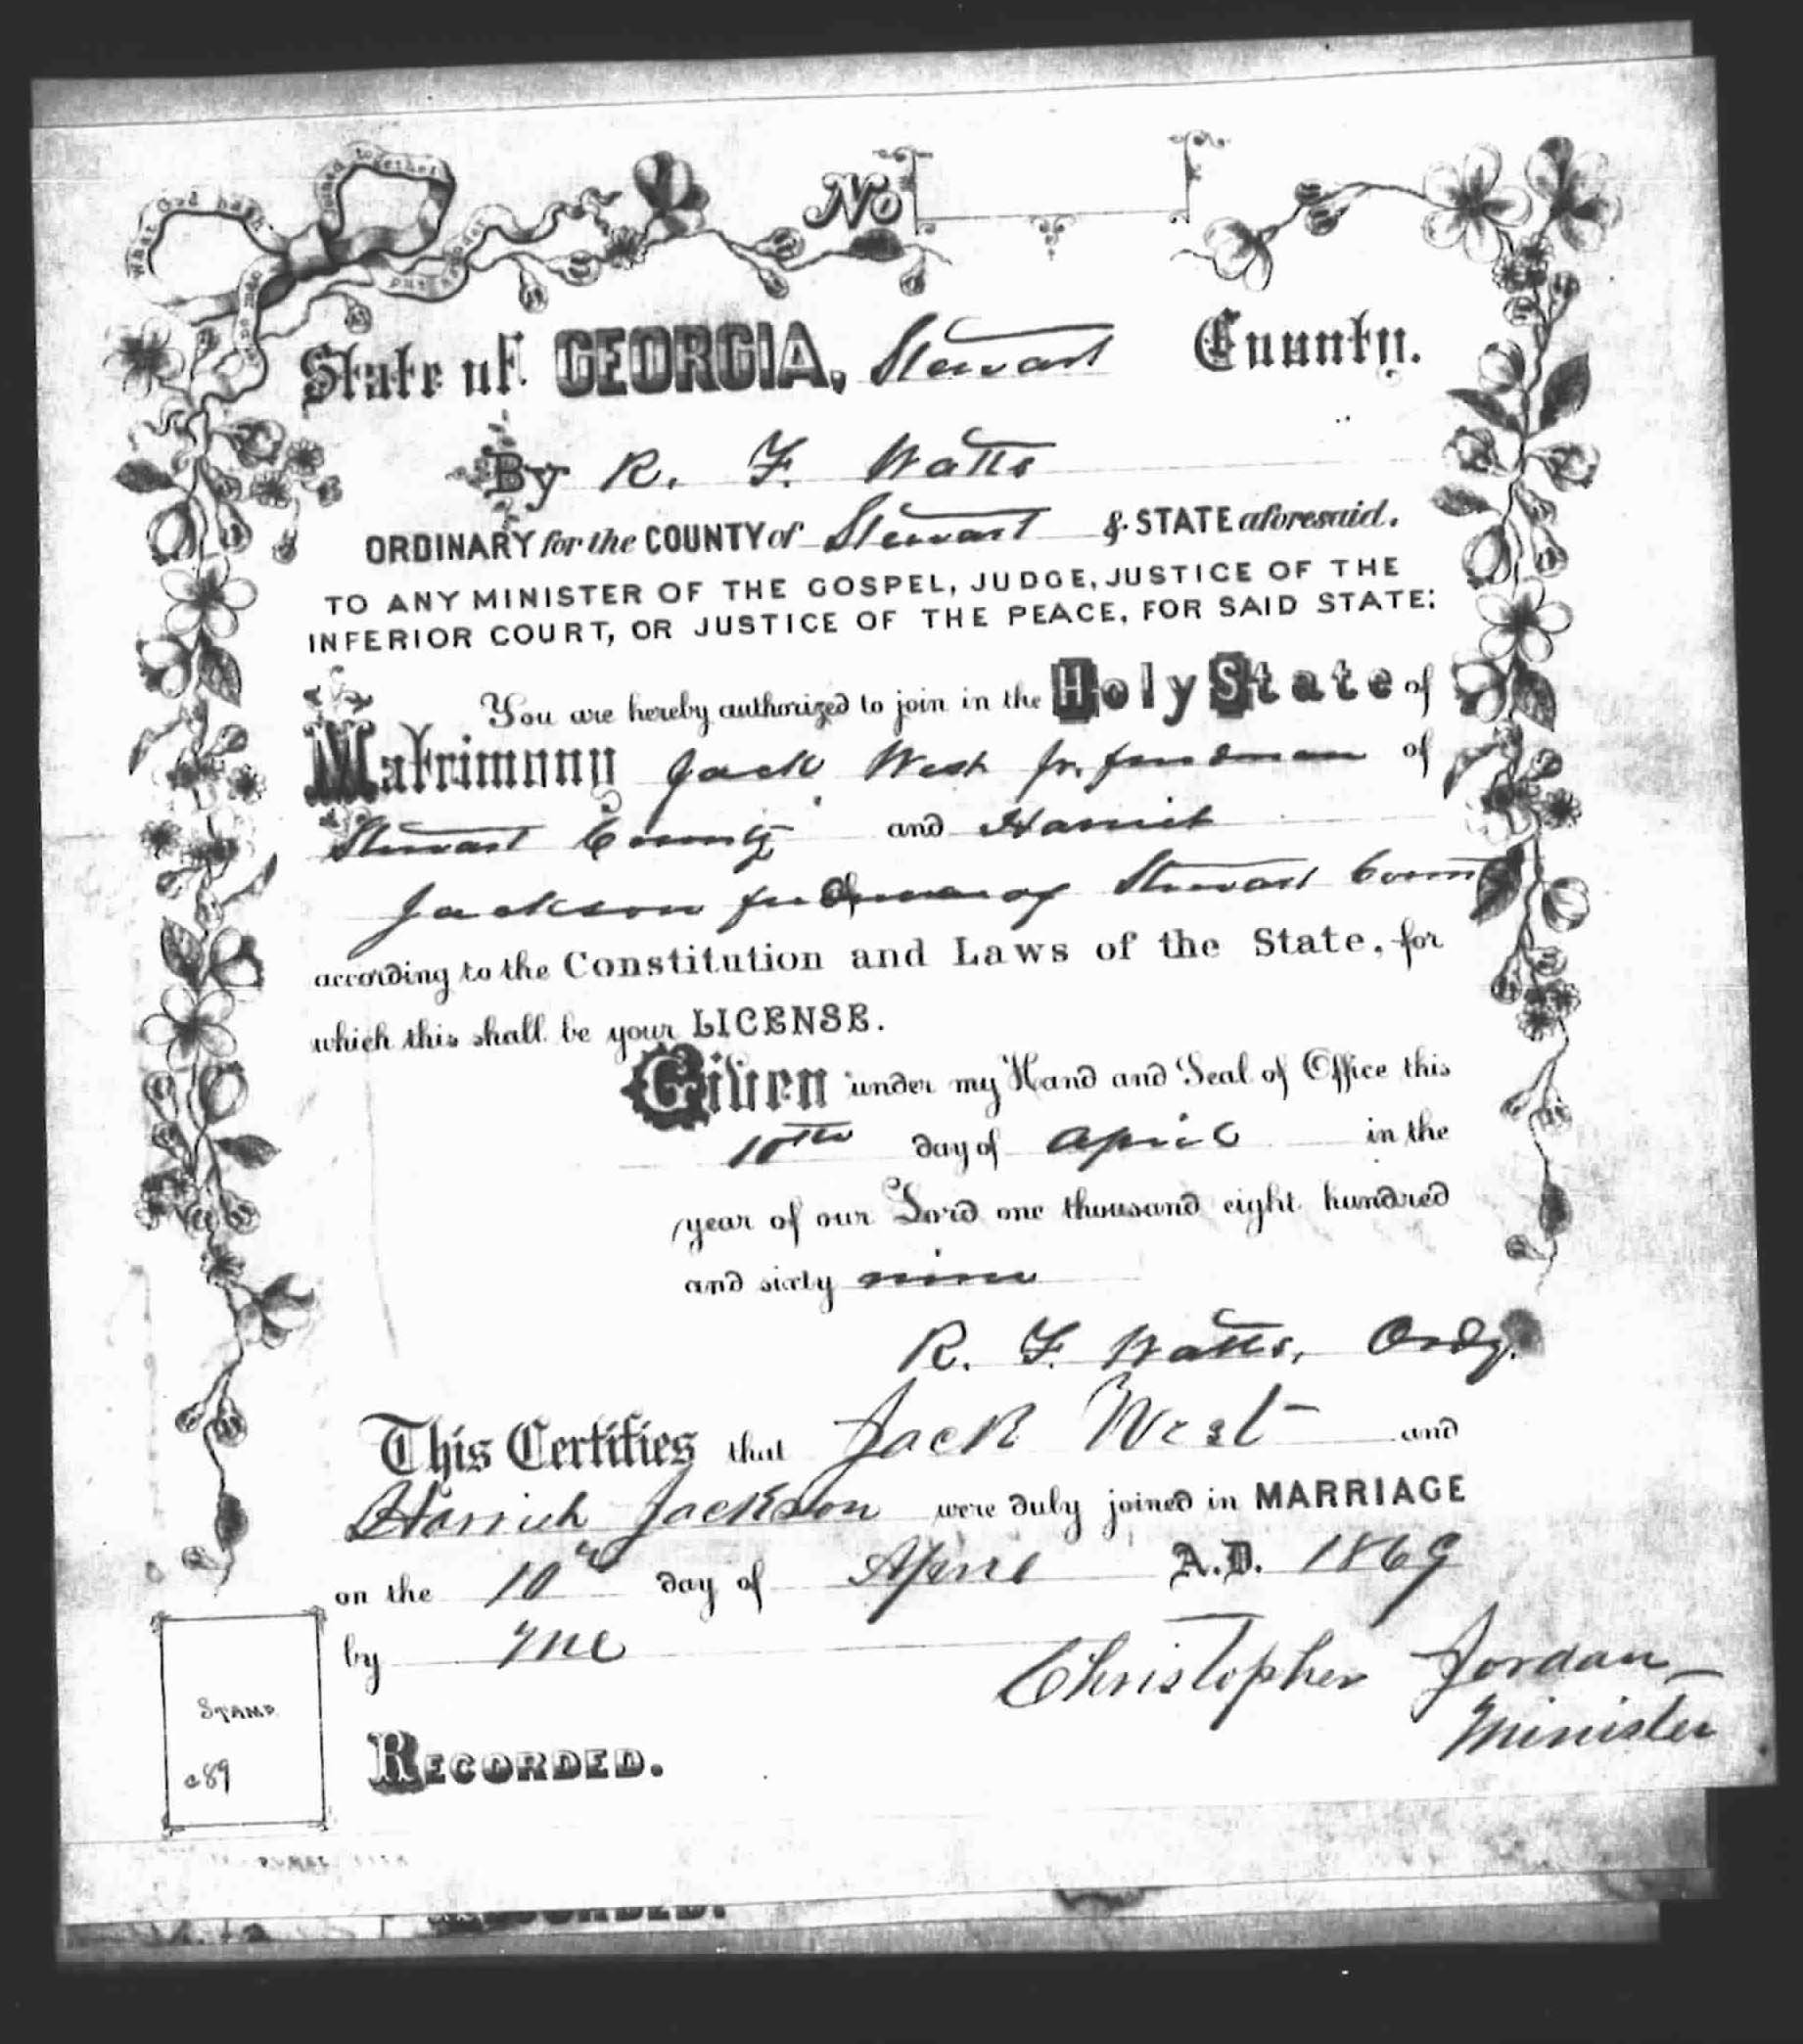 What God hath joined together
let no man put asunder
No
State of GEORGIA, Stewart County.
By R. F. Watts
ORDINARY for the COUNTY of Stewart & STATE aforesaid.
TO ANY MINISTER OF THE GOSPEL, JUDGE, JUSTICE OF THE
INFERIOR COURT, OR JUSTICE OF THE PEACE, FOR SAID STATE:
You are hereby authorized to join in the Holy State of
Matrimony Jack West Jr. freedman of
Stewart County and Harriet
Jackson of Stewart County
according to the Constitution and Laws of the State, for
which this shall be your LICENSE.
Given under my Hand and Seal of Office this
10th day of April in the
year of our Lord one thousand eight hundred
and sixty nine
R. F. Watts, Ordy.
This Certifies that Jack West and
Harriet Jackson were duly joined in MARRIAGE
on the 10th day of April A.D. 1869
by me Christopher Jordan
Minister
STAMP
c89
RECORDED.
RECORDED.